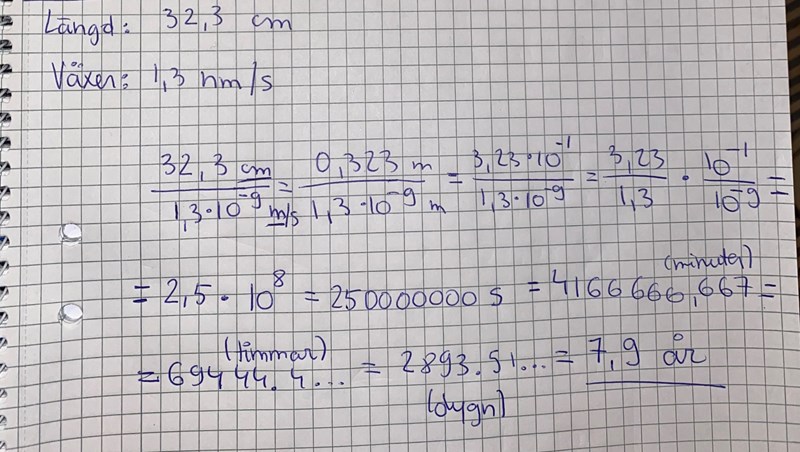 Längd: 32,3 cm
Växer: 1,3 nm/s
32,3 cm / 1,3·10⁻⁹ m/s = 0,323 m / 1,3·10⁻⁹ m = 3,23·10⁻¹ / 1,3·10⁻⁹ = 3,23 / 1,3 · 10⁻¹ / 10⁻⁹ =
= 2,5 · 10⁸ = 250000000 s = 4166666,667 (minuter) =
= 69444.4... (timmar) = 2893.51... (dygn) = 7,9 år